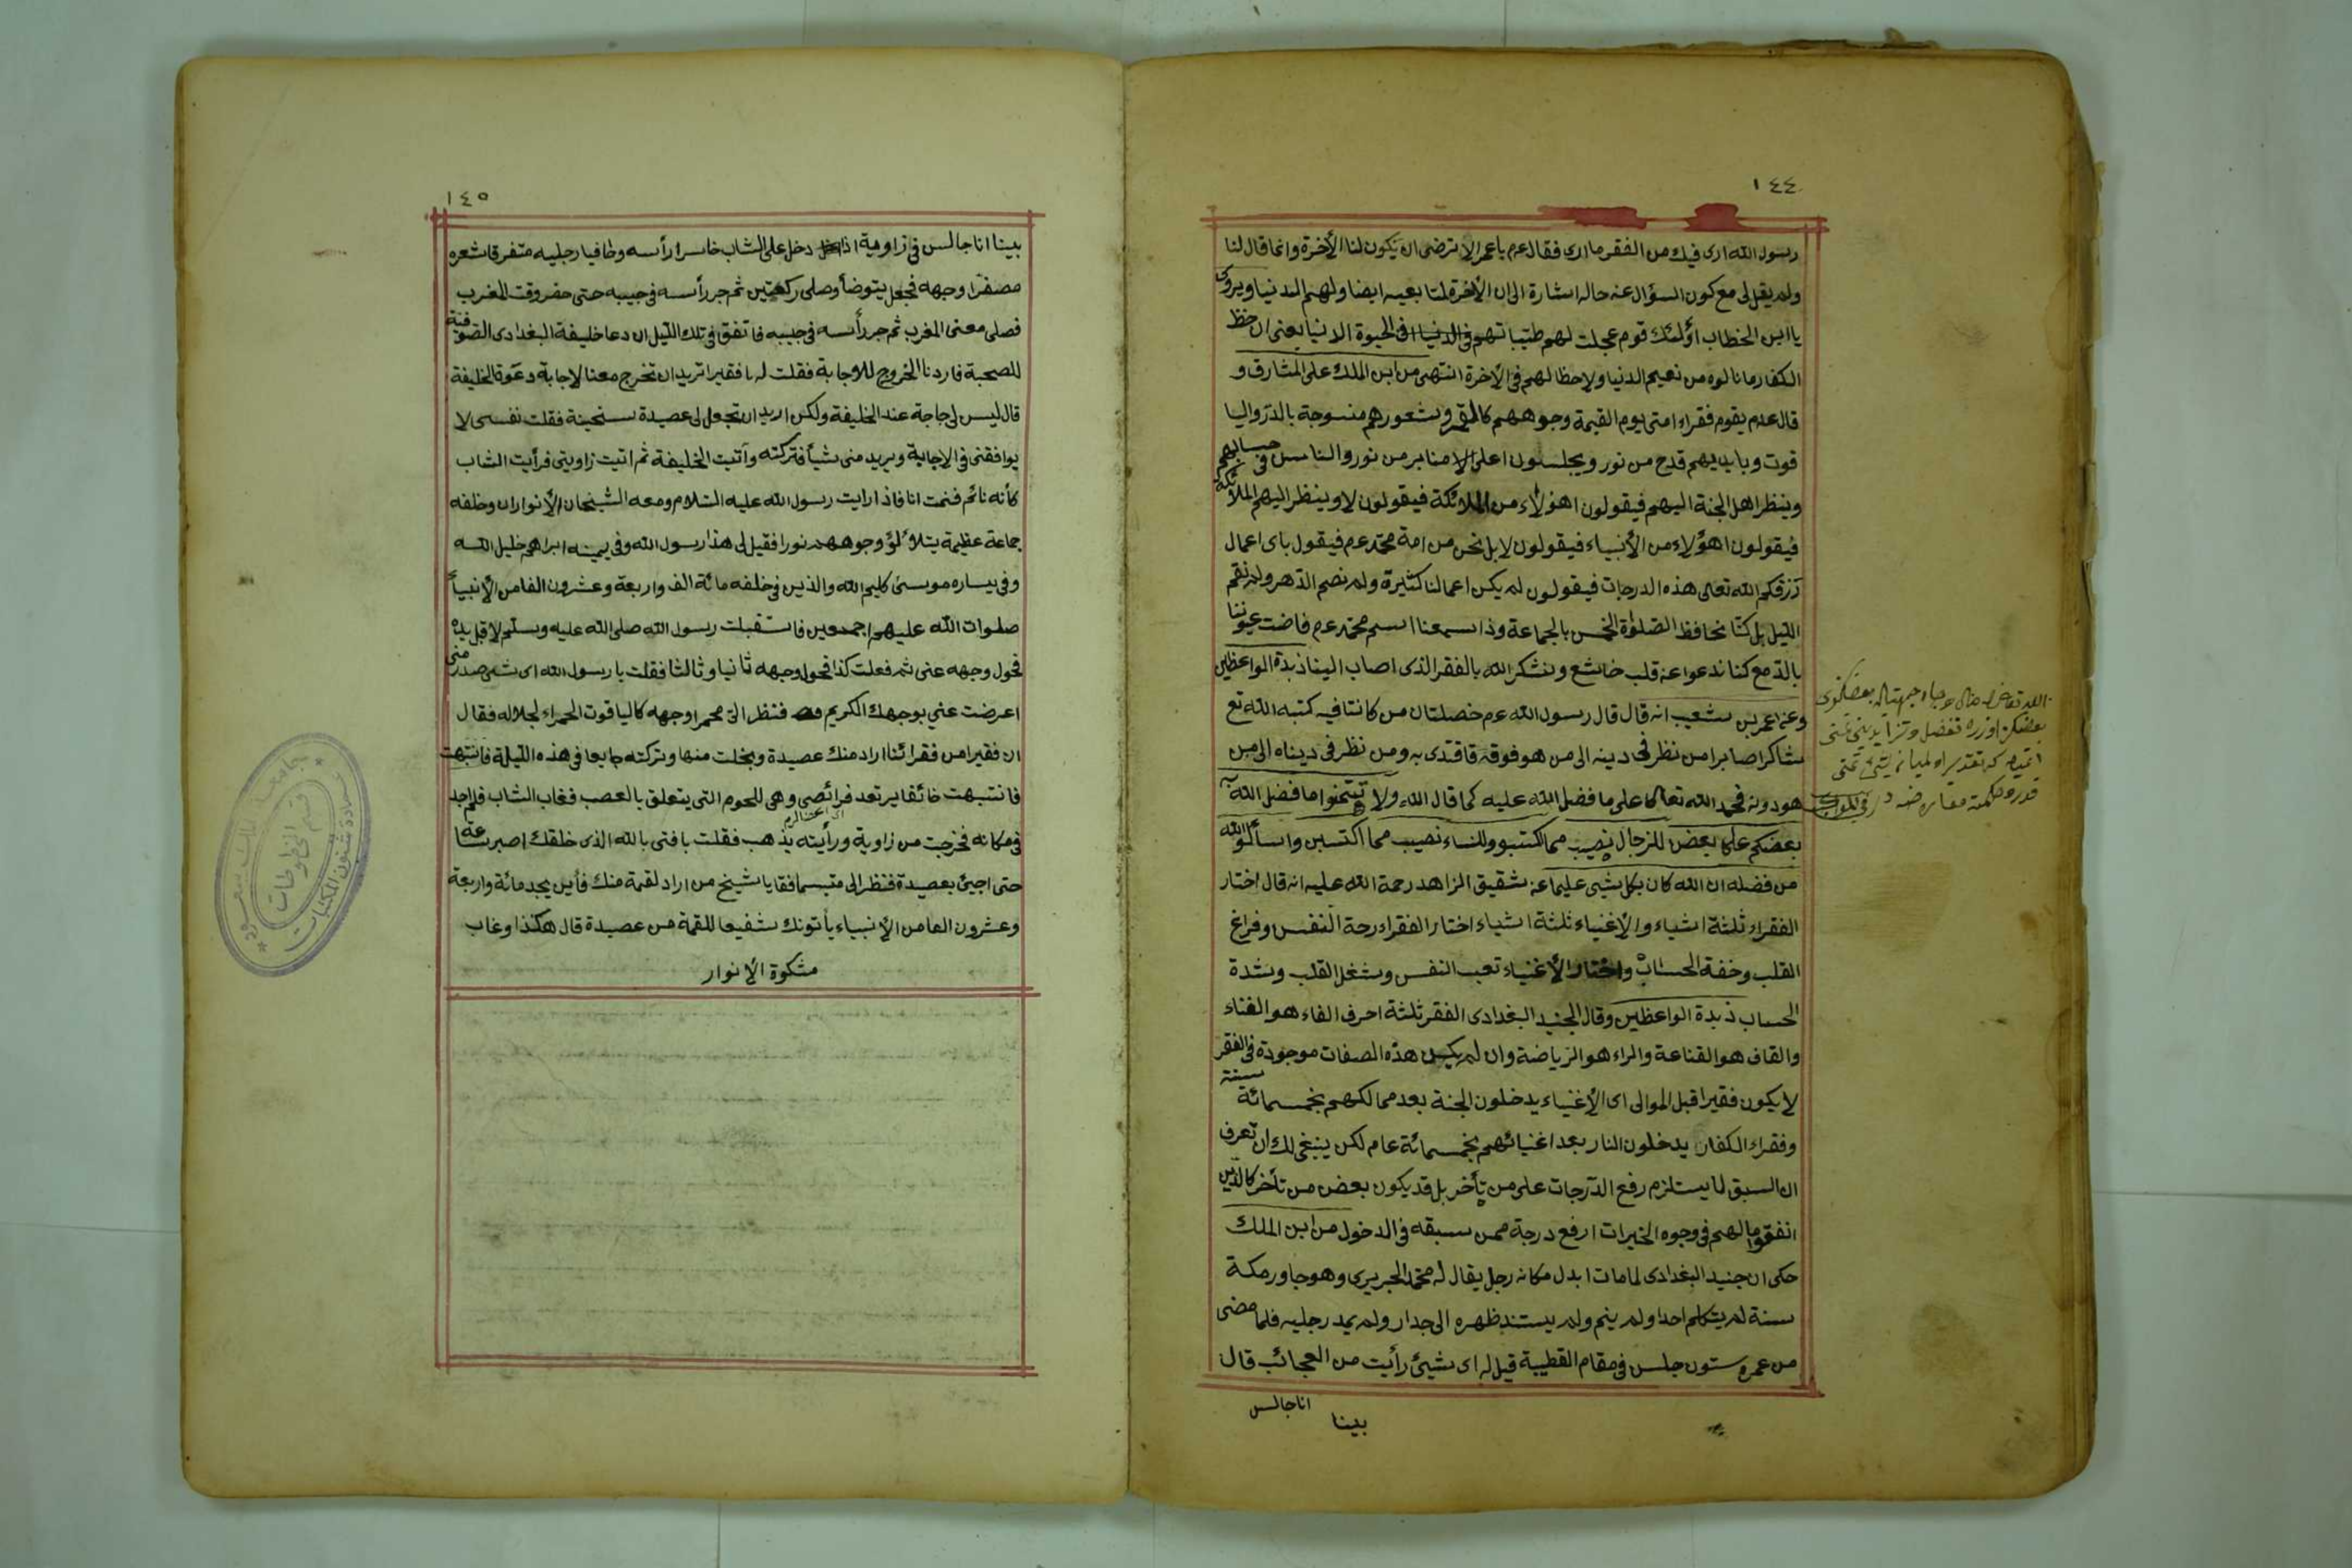 ١٤٤
رسول الله ارى فيك من الفقر ما ارى فقال عم يا عمر الا ترضى ان يكون لنا الأخرة وانما قال لنا
ولم يقل لى مع كون السؤال عنه حاله اشارة الى ان الأخرة لمتابعيه ايضا ولهم الدنيا ويروى
يا ابن الخطاب أولئك قوم عجلت لهم طيباتهم فى الحيوة الدنيا يعنى ان حظ
الكفار ما نالوه من نعيم الدنيا ولا حظا لهم فى الأخرة انتهى من ابن الملك على المشارق و
قال عم يقوم فقراء امتى يوم القيمة وجوههم كالقمر وشعورهم منسوجة بالدر واليا
قوت وبايديهم قدح من نور ويجلسون اعلى الا منابر من نور والناس فى حسابهم
وينظر اهل الجنة اليهم فيقولون اهؤلاء من الملائكة فيقولون لا وينظر اليهم الملائكة
فيقولون اهؤلاء من الأنبياء فيقولون لا بل نحن من امة محمد عم فيقول باى اعمال
رزقكم الله تعالى هذه الدرجات فيقولون لم يكن اعمالنا كثيرة ولم نصم الدهر ولم نقم
الليل بل كنا نحافظ الصلوة الخمس بالجماعة وذا سمعنا اسم محمد عم فاضت عيوننا
بالدمع كنا ندعوا عن قلب خاشع ونشكر الله بالفقر الذى اصاب الينا زبدة الواعظين
وعن عمر بن شعيب انه قال قال رسول الله عم خصلتان من كانتا فيه كتبه الله تع
شاكرا صابرا من نظر فى دينه الى من هو فوقه فاقتدى به ومن نظر فى دنياه الى من
هو دونه فحمد الله تعالى على ما فضل الله عليه كما قال الله ولا تتمنوا ما فضل الله به
بعضكم على بعض للرجال نصيب مما اكتسبوا وللنساء نصيب مما اكتسبن واسألوا الله
من فضله ان الله كان بكل شيى عليما عن شقيق الزاهد رحمة الله عليه انه قال اختار
الفقراء ثلثة اشياء والأغنياء ثلثة اشياء اختار الفقراء رحة النفس وفراغ
القلب وخفة الحساب واختار الأغنياء تعب النفس وشغل القلب وشدة
الحساب زبدة الواعظين وقال الجنيد البغدادى الفقر ثلثة احرف الفاء هو الفناء
والقاف هو القناعة والراء هو الرياضة وان لم يكن هذه الصفات موجودة فى الفقر
لا يكون فقيرا قبل الموالى اى الأغنياء يدخلون الجنة بعد مما لكهم بخمسمائة سنة
وفقراء الكفار يدخلون النار بعد اغنيائهم بخمسمائة عام لكن ينبغى لك ان تعرف
ان السبق لا يستلزم رفع الدرجات على من تأخر بل قد يكون بعض من تأخر كالذين
انفقوا مالهم فى وجوه الخيرات ارفع درجة ممن سبقه فى الدخول من ابن الملك
حكى ان جنيد البغدادى لما مات ابدل مكانه رجل يقال له محمد الجريرى وهو جاور مكة
سنة لم يتكلم احدا ولم ينم ولم يستند ظهره الى جدار ولم يمد رجليه فلما مضى
من عمره ستون جلس فى مقام القطبية قيل له اى شيئ رأيت من العجائب قال
بينا
انا جالس
١٤٥
بينا انا جالس فى زاوية اذا دخل على الشاب خاسرا رأسه وحافيا رجليه متفرقا شعره
مصفرا وجهه فجعل يتوضأ وصلى ركعتين ثم جر رأسه فى جيبه حتى حضر وقت المغرب
فصلى معنى المغرب ثم جر رأسه فى جيبه فاتفق فى تلك الليل ان دعا خليفة البغدادى الصوفية
للصحبة فاردنا الخروج للاوجابة فقلت له يا فقير اتريد ان تخرج معنا لاجابة دعوة الخليفة
قال ليس لى حاجة عند الخليفة ولكن اريد ان تجعل لى عصيدة سخينة فقلت نفسى لا
يوافقنى فى الاجابة ويريد منى شيأ فتركته وآتيت الخليفة ثم اتيت زاويتى فرأيت الشاب
كأنه نائم فنمت انا فاذا رايت رسول الله عليه السلام ومعه الشيخان الأنواران وخلفه
جماعة عظيمة يتلاؤلؤ وجوههم نورا فقيل لى هذا رسول الله وفى يمينه ابراهيم خليل الله
وفى يساره موسى كليم الله والذين فى خلفه مائة الف واربعة وعشرون الفا من الأنبياء
صلوات الله عليهم اجمعين فاستقبلت رسول الله صلى الله عليه وسلم لاقبل يده
فحول وجهه عنى ثم فعلت كذا فحول وجهه ثانيا وثالثا فقلت يا رسول الله اى شيئ صدر منى
اعرضت عني بوجهك الكريم فنظر الى محمرا وجهه كالياقوت الحمراء لجلاله فقال
ان فقيرا من فقرائنا اراد منك عصيدة وبخلت منها وتركته جايعا فى هذه الليلة فانتبهت
فانتبهت خائفا يرتعد فرائصى وهى للحوم التى يتعلق بالعصب فغاب الشاب فلم اجد
فى مكانه فخرجت من زاوية ورأيته يذهب فقلت يا فتى بالله الذى خلقك اصبر ساعة
حتى اجيئ بعصيدة فنظر الى متبسما فقا يا شيخ من اراد لقمة منك فأين يجد مائة واربعة
وعشرون الفا من الأنبياء يأتونك شفيعا للقمة من عصيدة قال هكذا وغاب
مشكوة الأنوار
قسم المخطوطات
عمادة شئون المكتبات